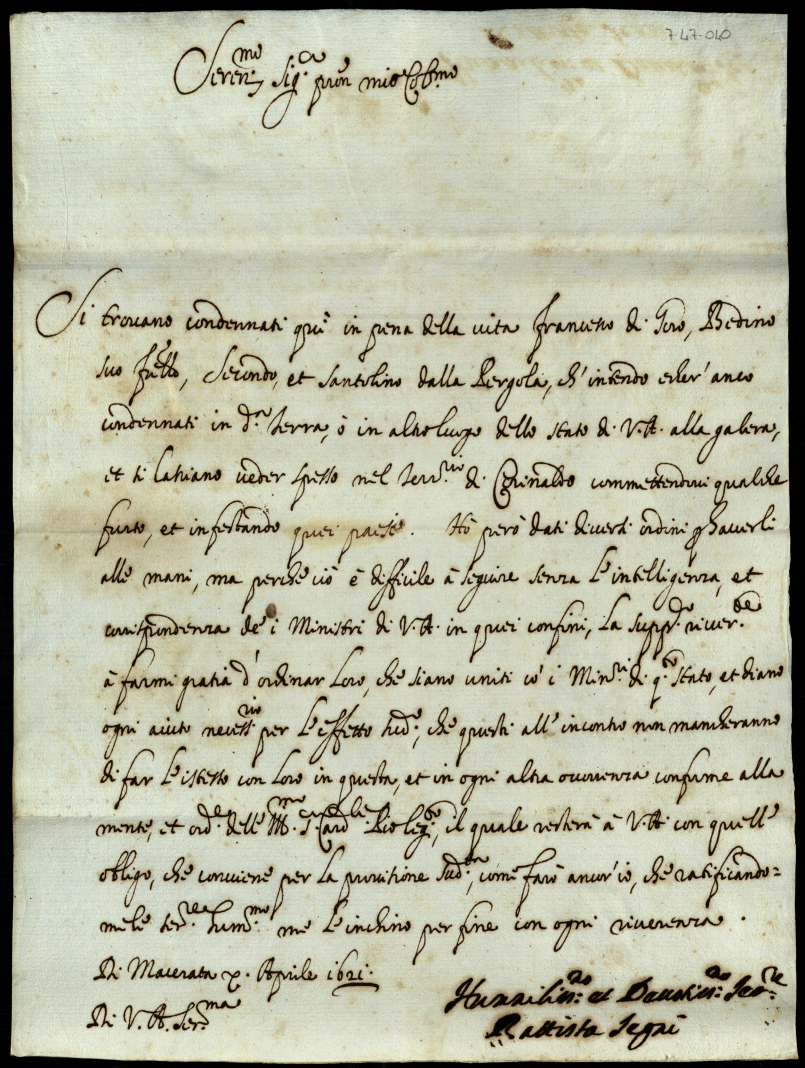 7-47-040
Seren.mo Sig.r pron mio Col.mo
Si trovano condennati quì in pena della vita Francesco di Goro, Bedino
suo fr̃ello, Secondo, et Santolino dalla Pergola, ch'intendo esser' anco
condennati in d.a Terra, ò in altro luogo dello stato di V.A. alla galera,
et si lasciano veder spesso nel Terr.rio di Corinaldo commettendovi qualche
furto, et infestando quei paesi. Hò però dati diversi ordini p haverli
alle mani, ma perche ciò è difficile à seguire senza l'intelligenza, et
corrispondenza de' i Ministri di V.A. in quei confini, la supp.co river.te
à farmi gratia d'ordinar loro, che siano uniti co' i Min.ri di q.o stato, et diano
ogni aiuto necess.rio per l'effetto sud.o, che questi all'incontro non mancheranno
di far l'istesso con loro in questa, et in ogni altra occorrenza conforme alla
mente, et ord.e dell' Ill.mo S.r Card.le leg.to, il quale resterà à V.A. con quell'
obligo, che conviene per la provisione sud.a, come farò ancor'io, che ratificando=
mele ser.re hum.mo me l'inchino per fine con ogni riverenza.
Di Macerata x. Aprile 1621.
Di V.A. Ser.ma
Humiliss.mo et Devotiss.mo Ser.re
Battista Segni